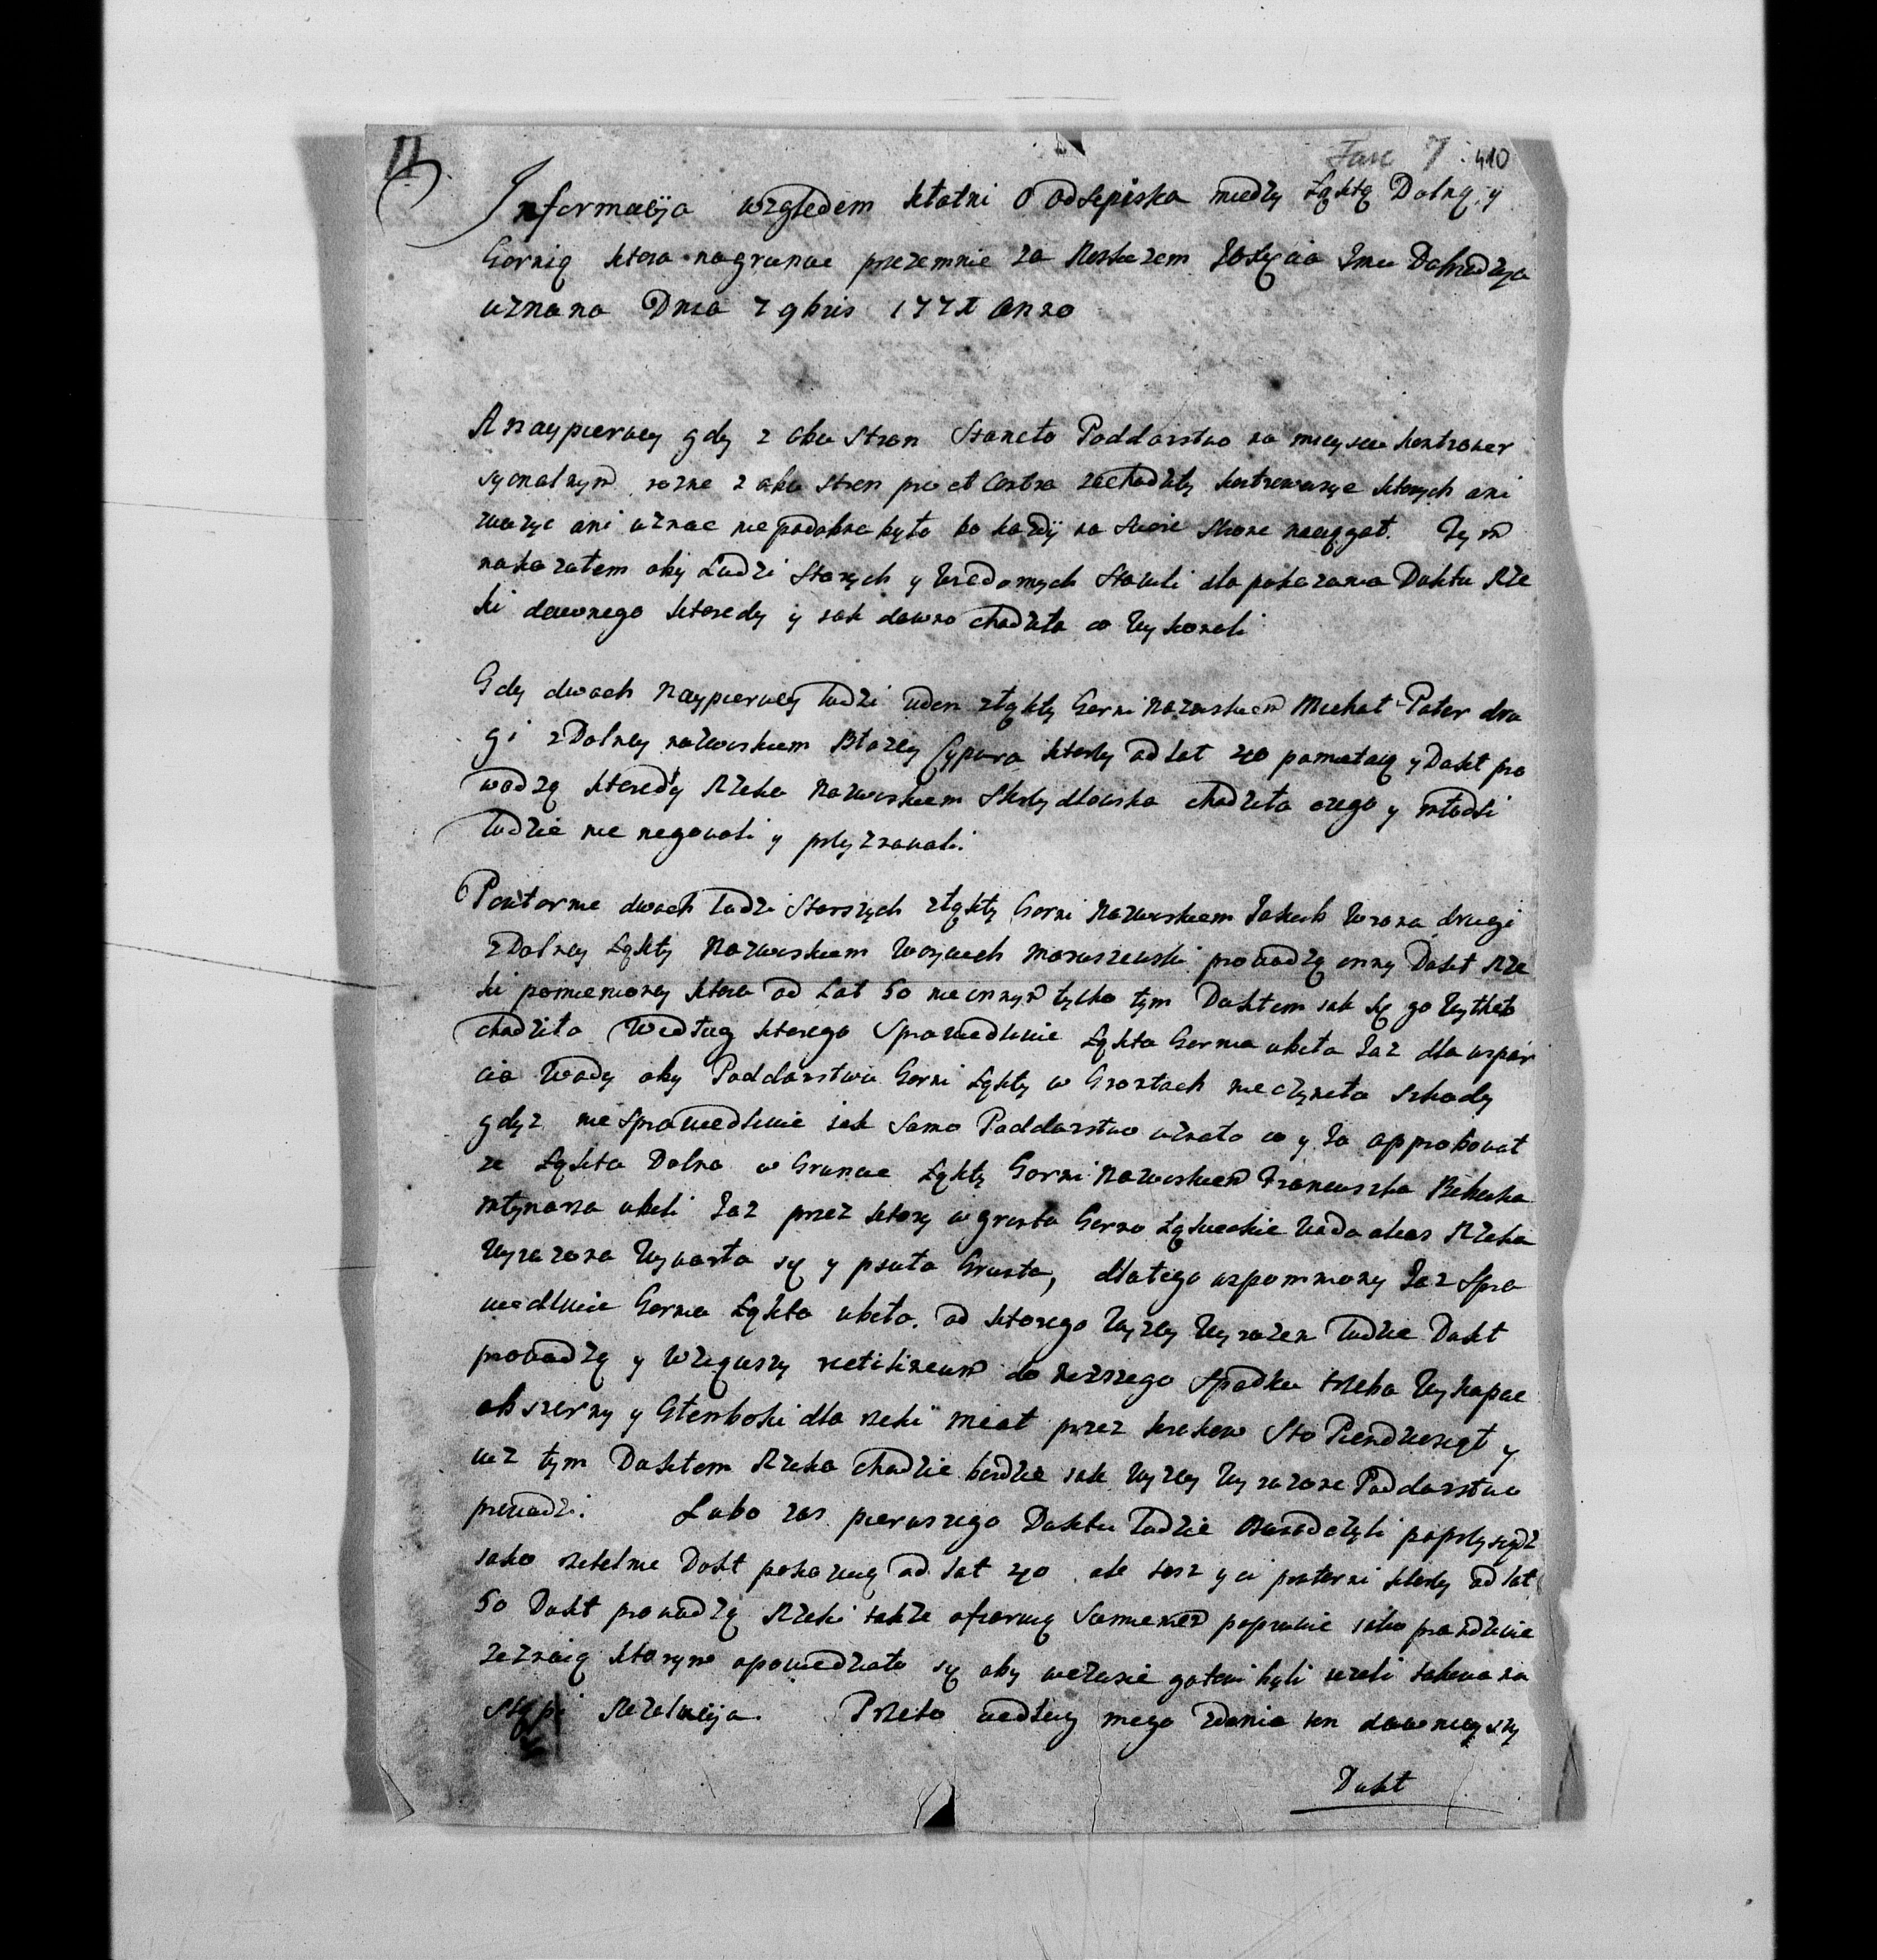 11
Fasc 7. 410
Informacija względem kłotni o odsepiska miedzy Łąktą Dolną, y
Gornią ktora na gruncie przezemnie za Roskazem Jmci Dobrodzieja
uznana Dnia 7 9bris 177 Anno
A naypierwey gdy z obu stron staneło Poddanstwo na mieyscu kontrower
syonalnym rozne z obu stron pro et contra zachodziły kontrowersye ktorych ani
zwazyc ani uznac niepodobna było bo kazdy na swoie strone naciągał. Tym
nakazałem aby Ludzi starych y wiadomych stawili dla pokazania Duktu Rze
ki dawnego ktoredy y jak dawno chodziła co wykonali
Gdy dwoch naypierwey ludzi ieden z Łąkty Gorni nazwiskiem Michał Pater dru
gi z Dolney nazwiskiem Błazey Cypura ktorzy od lat 40 pamietaią y Dukt pro
wadzą ktoredy Rzeka nazwiskiem chodziła czego y młodsi
ludzie nie negowali y przyznawali.
Powtornie dwoch ludzi starszych z Łąkty Gorni nazwiskiem Jakub Wrona drugi
z Dolney Łąkty nazwiskiem Woyciech Maruszewski prowadzą inny Dukt Rze
ki pomienioney ktora od Lat 50 nie innym tylko tym Duktem jak się go wytkło
chodziła Według ktorego sprawiedliwie Łąkta Gornia ubiła Jaz dla wspar
cia wody aby Poddanstwu Gorni Łąkty w Gruntach nie czyneła szkody
gdyz niesprawiedliwie jak samo Poddanstwo uznało co y Ja approbował
ze Łąkta Dolna w Gruncie Łąkty Gorni nazwiskiem Franciszka
młynarza ubili Jaz przez ktory w grunta Gorno Łąkieckie woda abo Rzeka
wyrazona wywarła się y psuła Grunta, dlatego wspomniony Jaz spra
wiedliwie Gornia Łąkta ubiła. od ktorego wyzey wyrazeni ludzie Dukt
prowadzą y wziąwszy rectilineum do nizszego spadku trzeba wykopac
obszerny y Głemboki dla rzeki meat przez krokow sto Piendziesiąt y
iuz tym Duktem Rzeka chodzic bendzie jak wyzey wyrazone Poddanstwo
prowadzi. Lubo zas pierwszego Duktu ludzie poprzysiądz
jako rzetelnie Dukt pokazuią od lat 40. ale tesz y ci powtorni ktorzy od lat
50 Dukt prowadzą Rzeki takze ofiaruią poprzec jako prawdziwie
zeznaią ktorym opowiedziało się aby wczasie gotowi byli iezeli takowa na
stąpi Rezolucija. Przeto według mego zdania ten dawnieyszy
Dukt